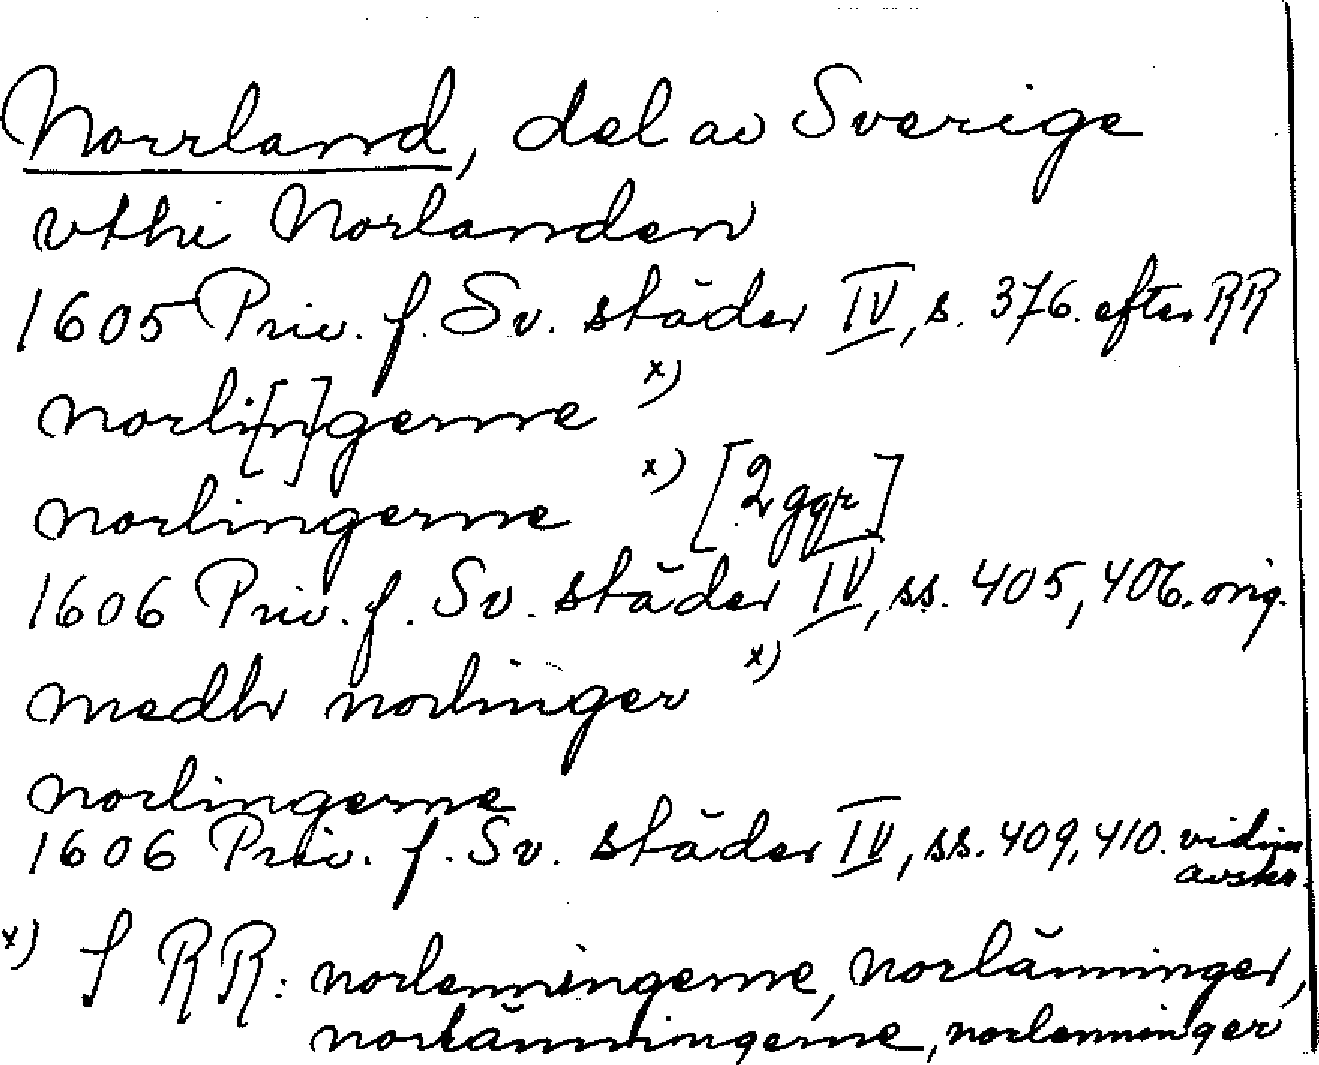 Norrland, del av Sverige
vthi Norlanden
1605 Priv. f. Sv. städer IV, s. 376. efter RR
norli[n]gerne x)
norlingerne x) [2 ggr]
1606 Priv. f. Sv. städer IV, ss. 405, 406. orig.
medh norlinger x)
norlingerne
1606 Priv. f. Sv. städer IV, ss. 409, 410. vidim
avskr.
x) I RR: norlenningerne, norlänninger,
norlänningerne, norlenninger